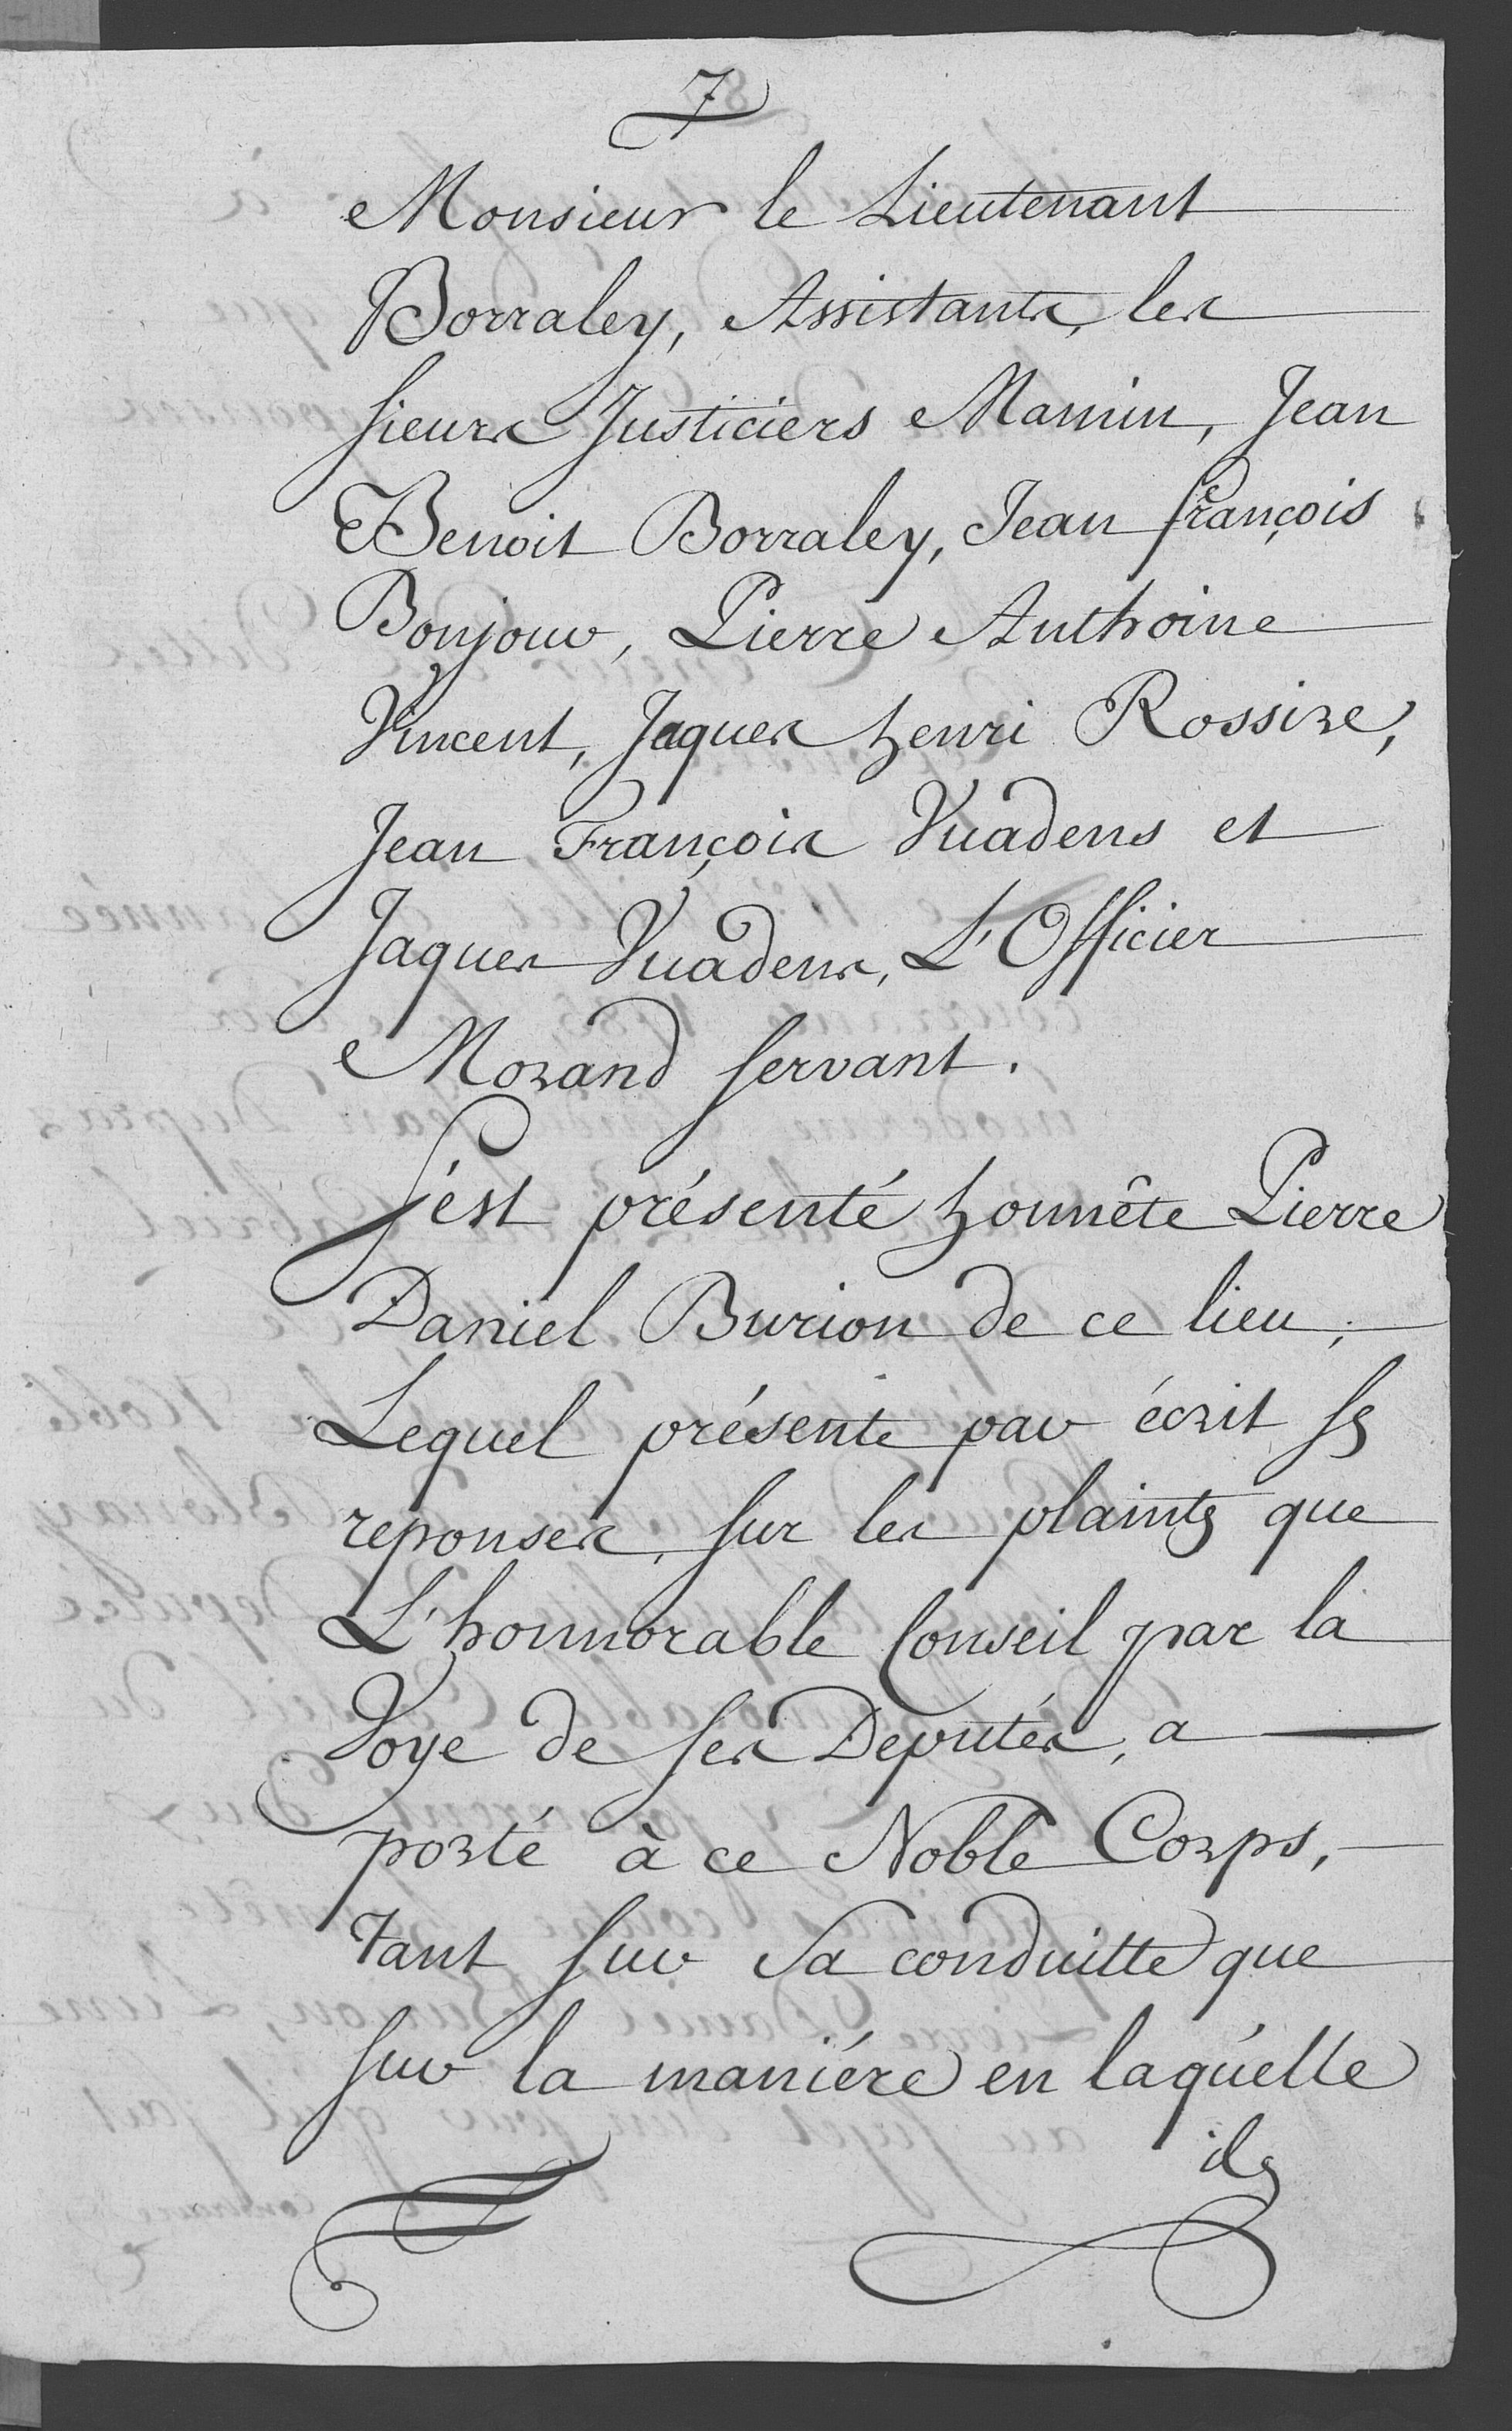 7
Monsieur le Lieutenant
Borraley, Assistants, les
sieurs Justiciers Mamin, Jean
Benoit Borraley, Jean françois
Bonjour, Pierre Anthoine
Vincent, Jaques henri Rossire,
Jean François Vuadens et
Jaques Vuadens, L'Officier
Morand servant.
S'est présenté honnête Pierre
Daniel Burion de ce lieu,
Lequel présente par écrit ses
reponses, sur les plaintes que
L'honnorable Conseil par la
Voye de ses Deputés, a
porté à ce Noble Corps,
tant sur sa conduitte que
sur la maniére en laquelle
ils